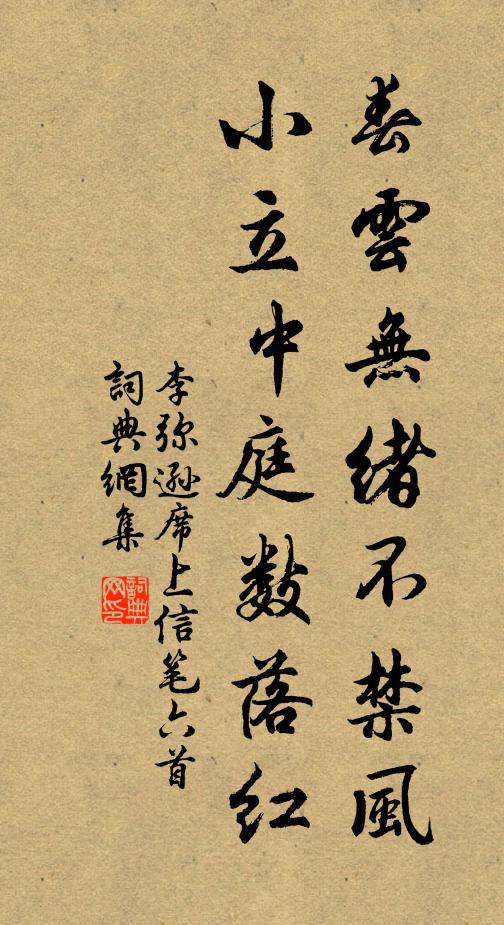 春雲無緒不禁風
小立中庭數落紅
李弥遜席上信笔六首
詞典網集
詞典网印